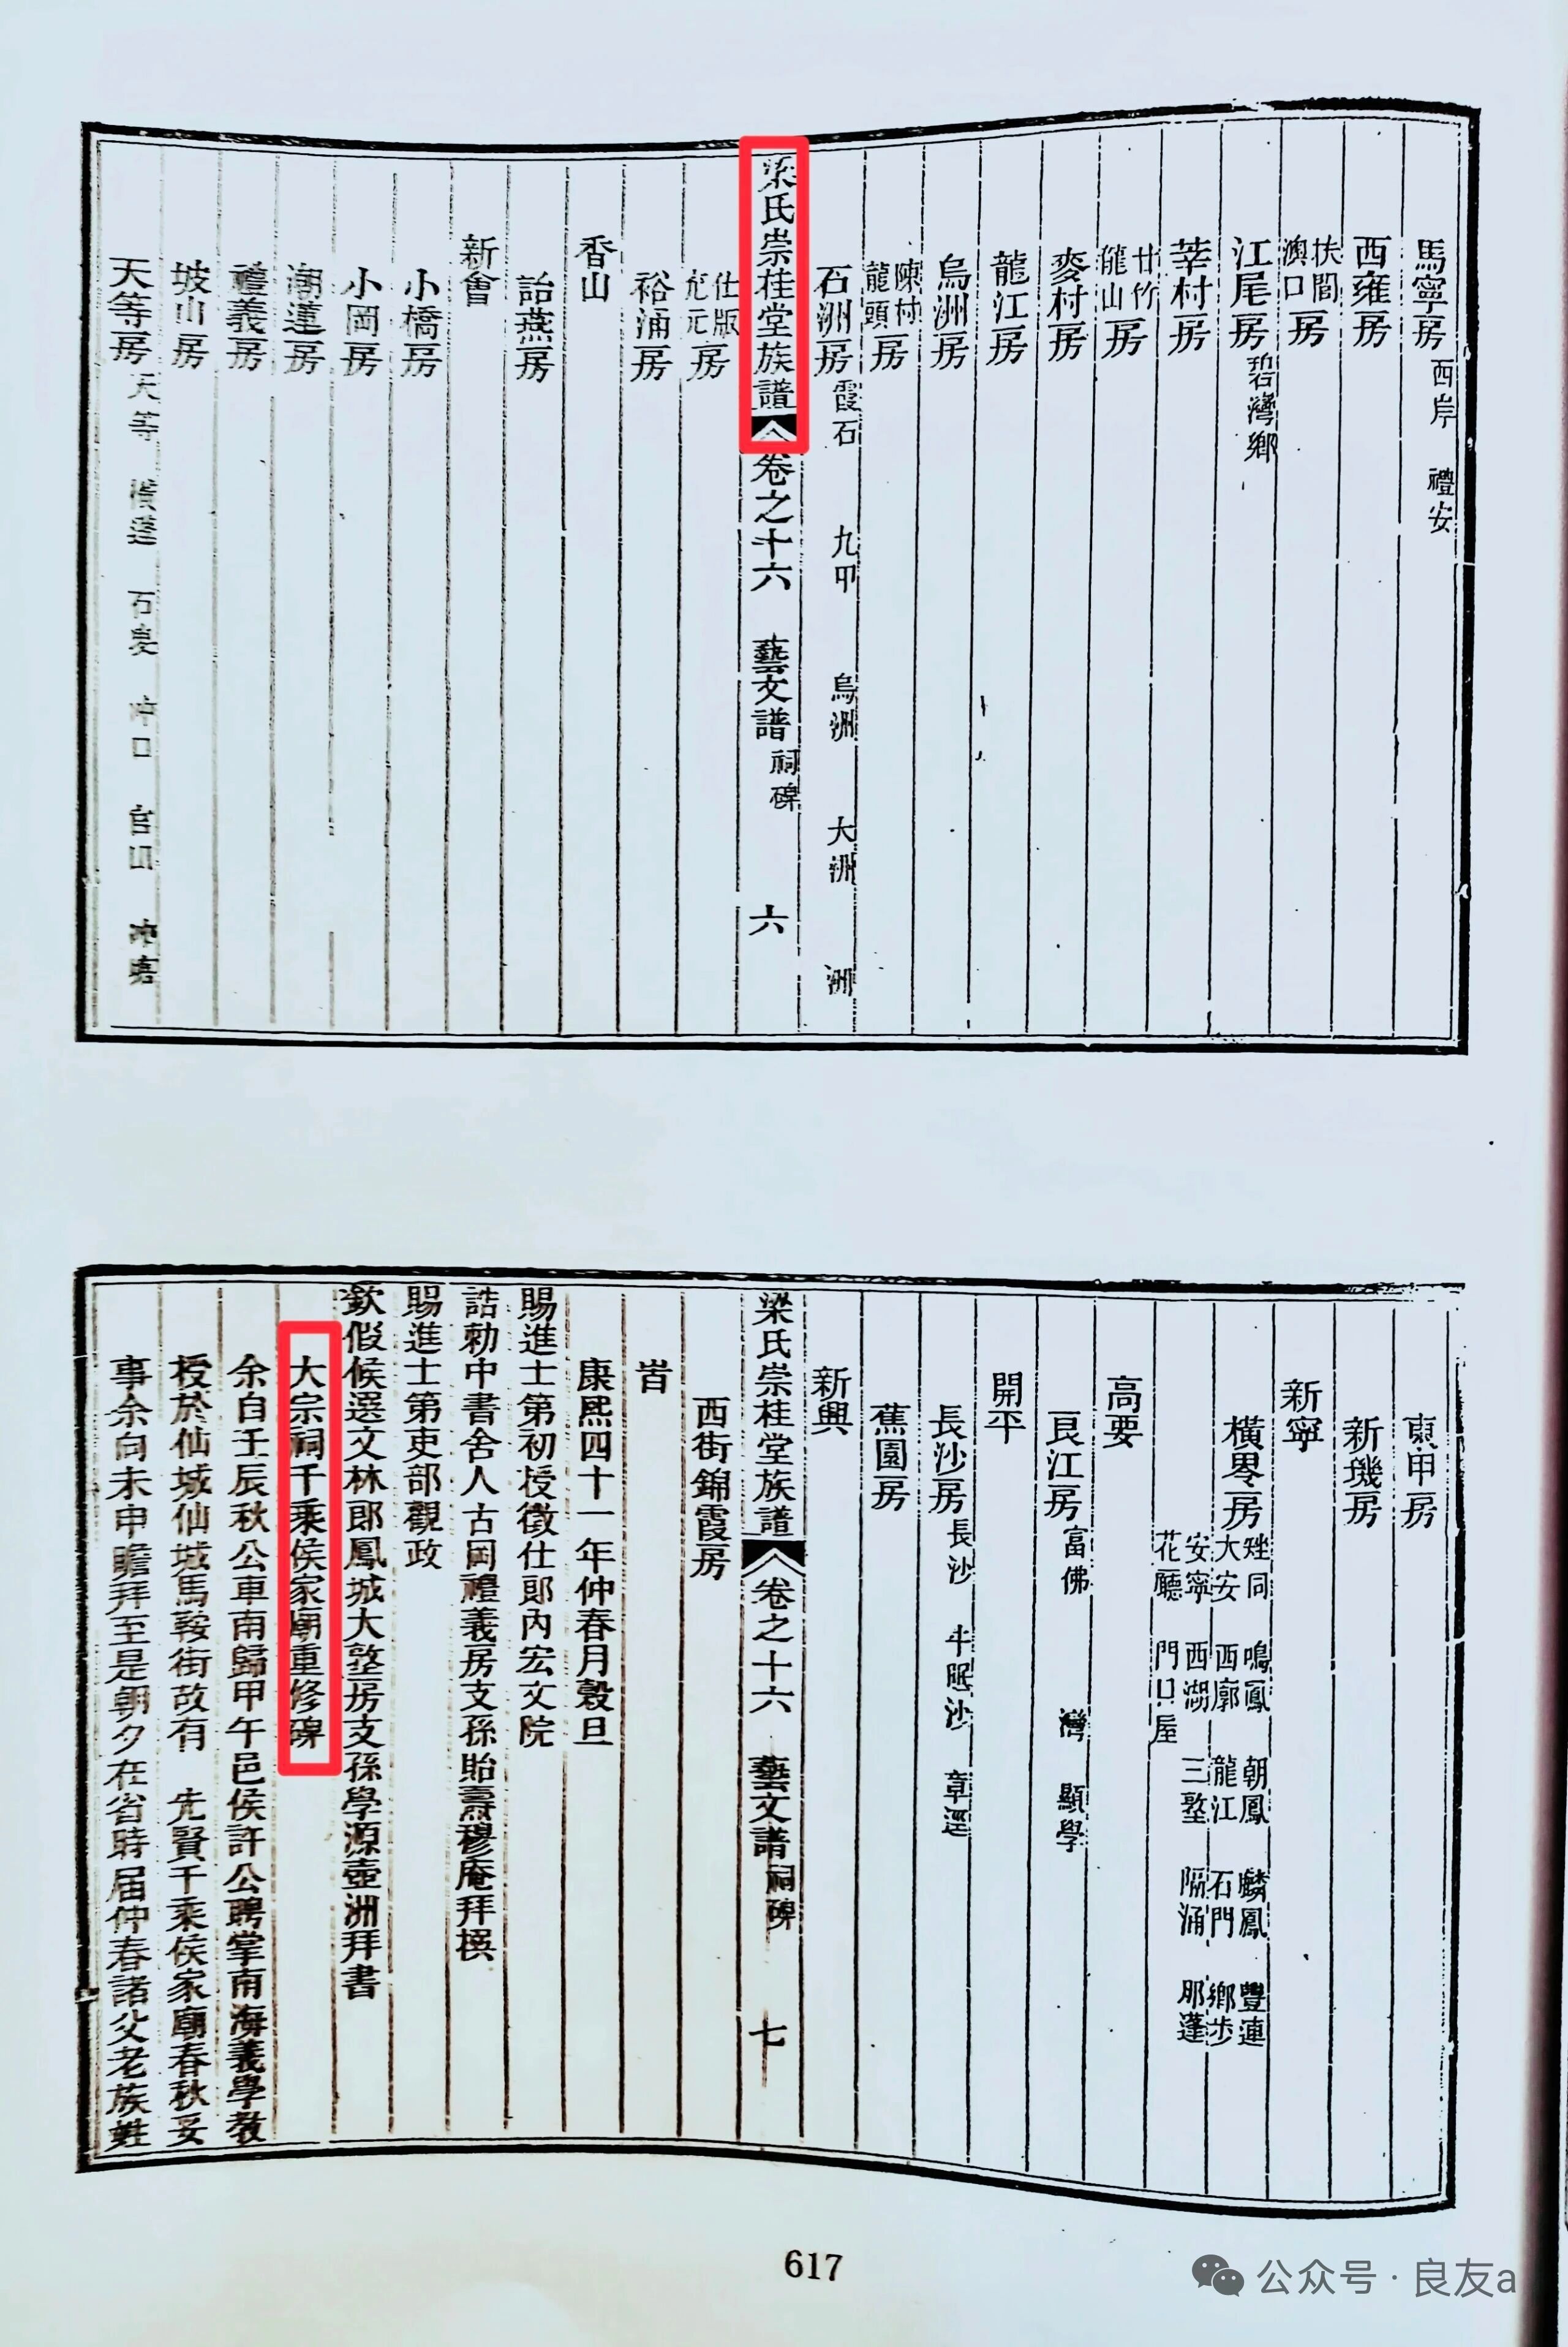 馬寧房 西岸 禮安
西雍房
扶閭
澳口房
江尾房 碧灣鄉
莘村房
甘竹
龍山房
麥村房
龍江房
烏洲房
陳村
龍頭房
石洲房 霞石 九甲 烏洲 大洲 洲
梁氏崇桂堂族譜 卷之十六 藝文譜 祠碑 六
仕版
房
裕涌房
香山
詒燕房
新會
小橋房
小岡房
潮蓮房
禮義房
坡山房
天等房 天等 橫 石 冲口 官田 冲
東甲房
新墩房
新寧
橫㘵房 大同 鳴鳳 朝鳳 麟鳳 豐連
大安 西廓 龍江 石門 鄉步
安寧 西湖 三㙟 隔涌 那蓬
花廳 門口屋
高要
良江房 富佛 灣 顯學
開平
長沙房 長沙 牛眠沙 章逕
蕉園房
新興
梁氏崇桂堂族譜 卷之十六 藝文譜 祠碑 七
西街錦霞房
旹
康熙四十一年仲春月穀旦
賜進士第初授徵仕郎內宏文院
誥勅中書舍人古岡禮義房支孫貽燾穆庵拜撰
賜進士第吏部觀政
欽假候選文林郎鳳城大㙟房支孫學源壺洲拜書
大宗祠千乘侯家廟重修碑
余自壬辰秋公車南歸甲午邑侯許公聘掌南海義學教
授於仙城仙城馬鞍街故有 先賢千乘侯家廟春秋妥
事余向未申瞻拜至是朝夕在省時届仲春諸父老族姓
617
公众号·良友a